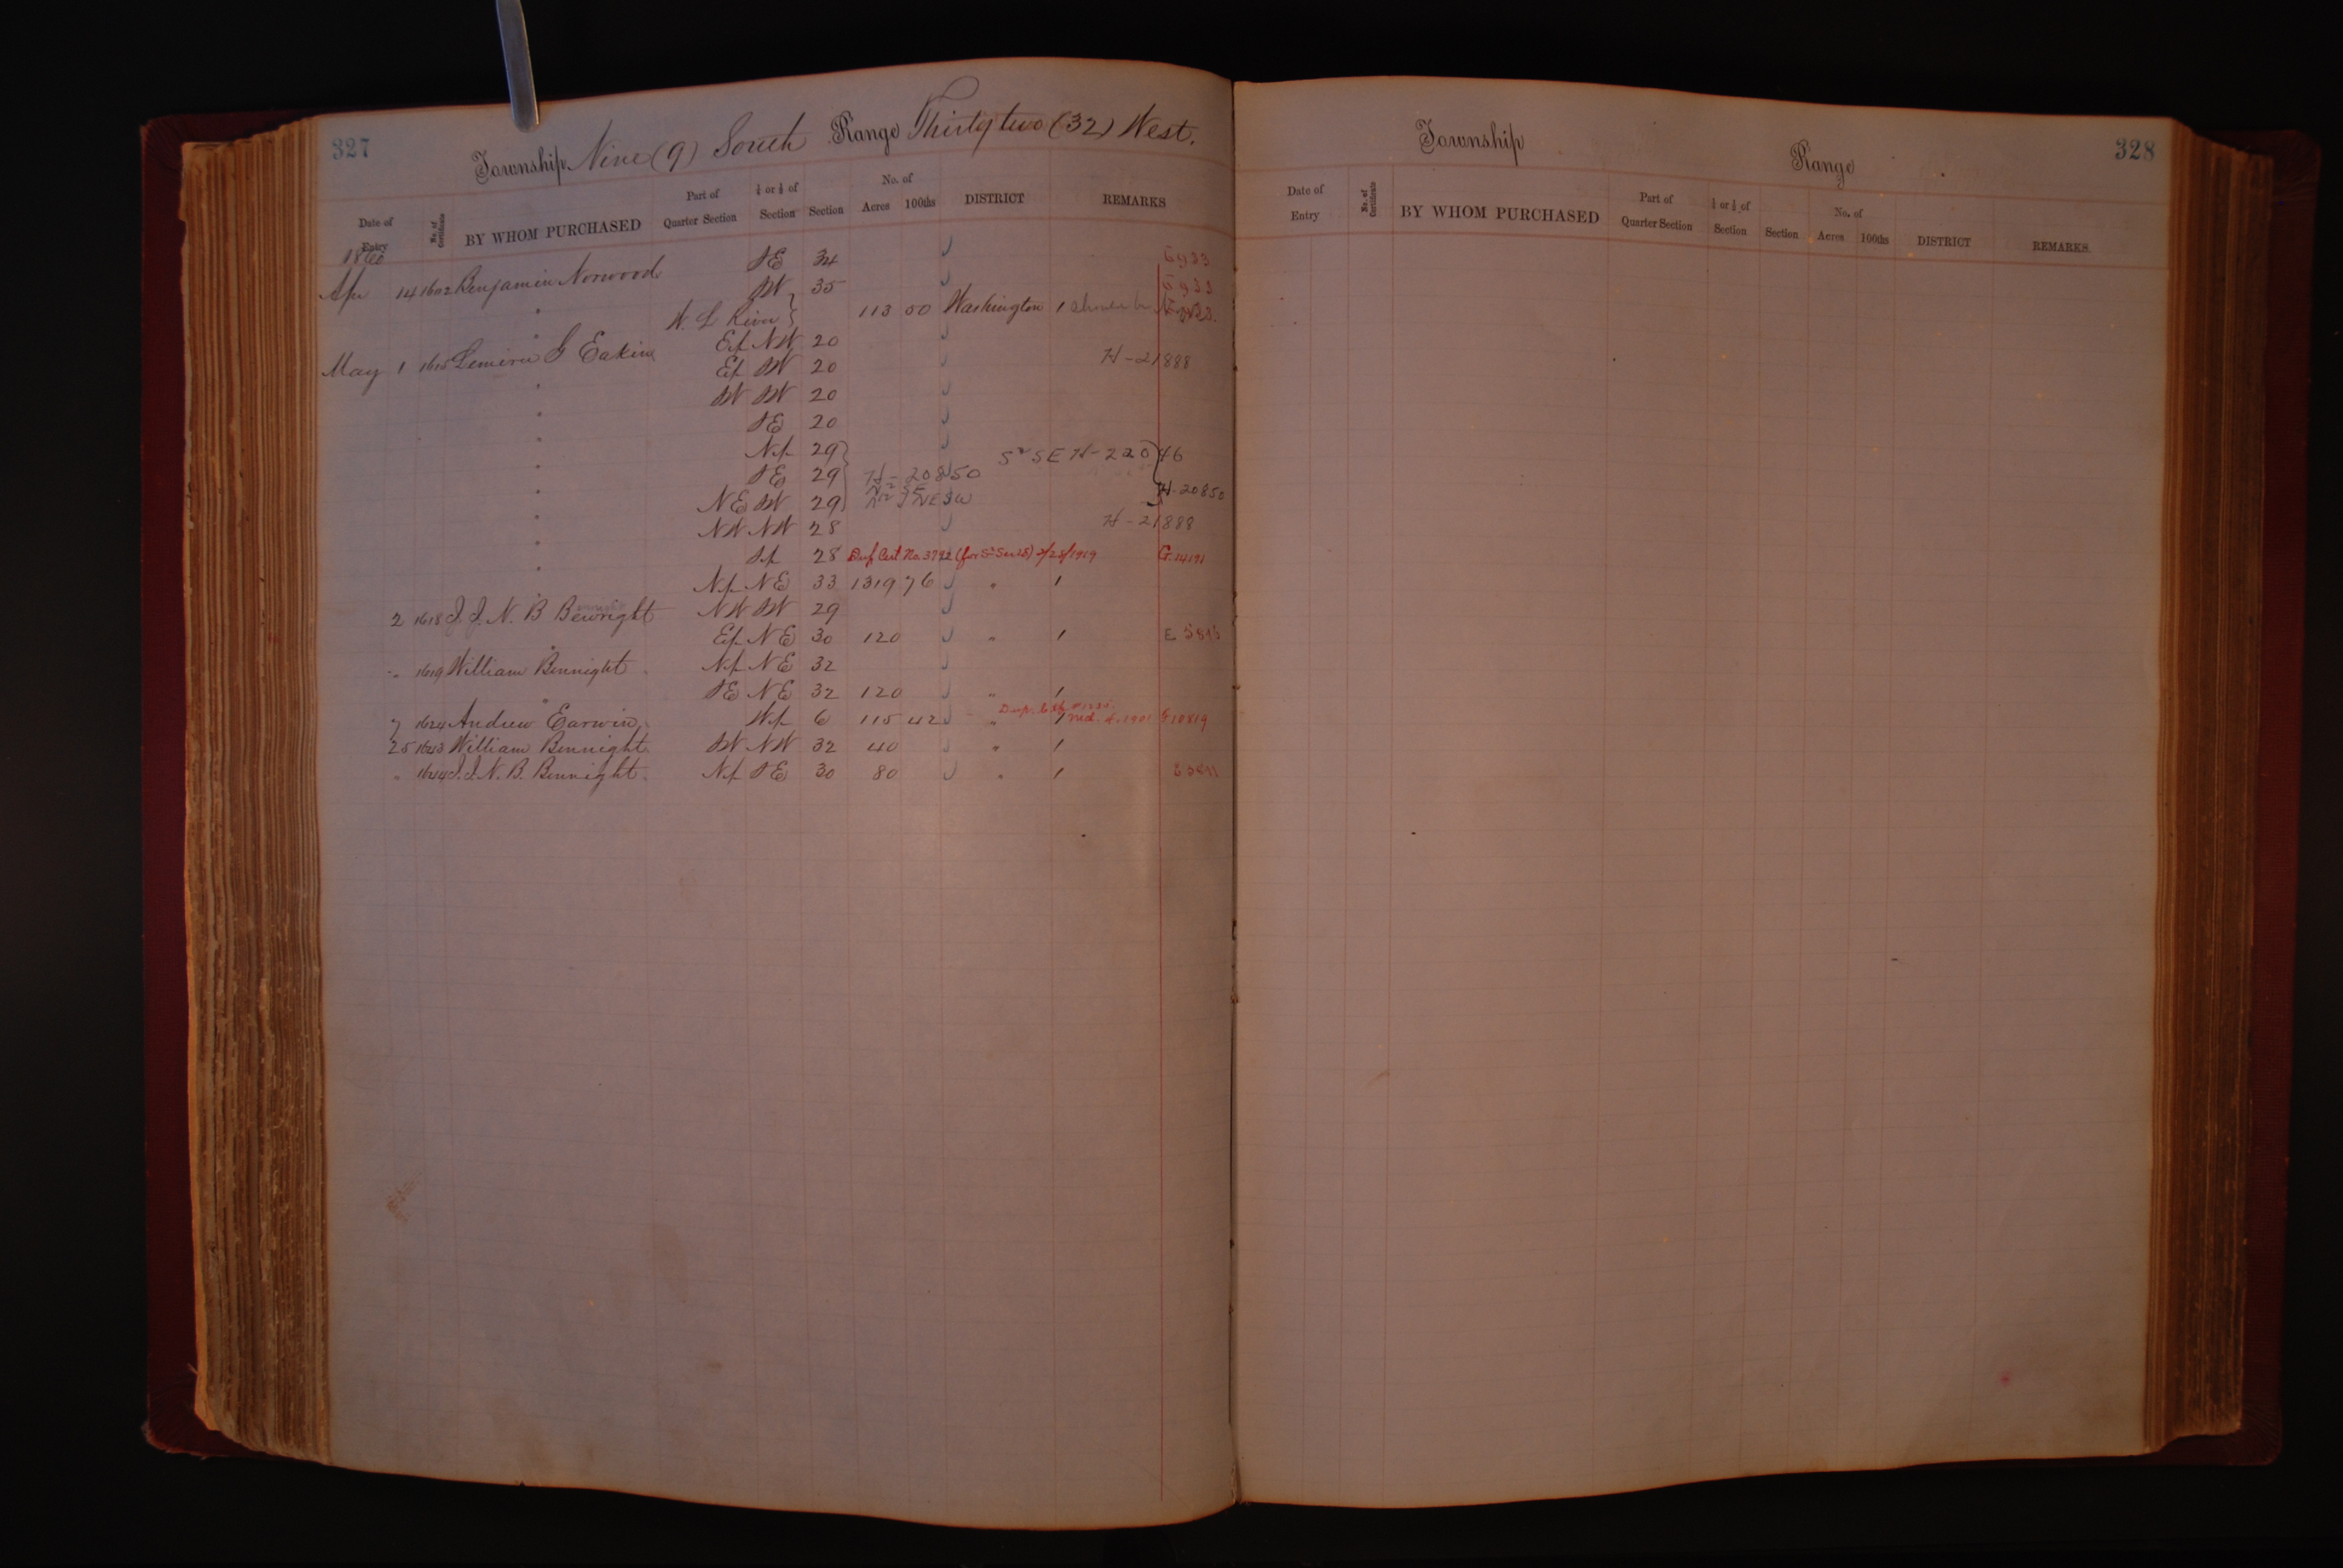 327
Township Nine (9) South Range Thirty two (32) West.
Date of Entry No. of Certificate BY WHOM PURCHASED Part of Quarter Section ¼ or ½ of Section Section No. of Acres 100ths DISTRICT REMARKS
1860
Apr 14 1602 Benjamin Norwood SE 34 6933
" SW 35 6933
" W. L River 113 50 Washington 1
May 1 1615 G Eakin E½ NW 20
" E½ SW 20 H-21888
" SW SW 20
" SE 20
" N½ 29 S² SE H-22046
" SE 29 H-20850
" NE SW 29 NESW H-20850
" NW NW 28 H-21888
" S½ 28 Dup Cert No. 3792 (for S² Sec 28) 2/28/1919 G.14191
" N½ NE 33 1319 76 " 1
2 1618 J. J. N. B Bewright NW SW 29
" E½ NE 30 120 " 1
" 1619 William Bennight N½ NE 32
" SE NE 32 120 " 1
7 1624 Andrew Earwin W½ 6 115 42 " 1 10819
25 1643 William Bennight SW NW 32 40 " 1
" 1644 J. J. N. B. Bennight N½ SE 30 80 " 1
328
Township Range
Date of Entry No. of Certificate BY WHOM PURCHASED Part of Quarter Section ¼ or ½ of Section Section No. of Acres 100ths DISTRICT REMARKS.